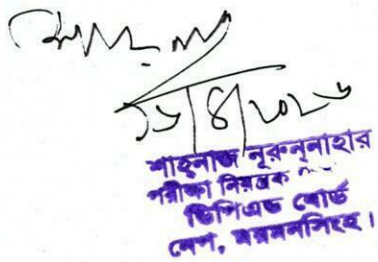 ১৬/৪/২০১৬
শাহনাজ নূরুন্‌নাহার
পরীক্ষা নিয়ন্ত্রক
ডিপিএড বোর্ড
নেপ, ময়মনসিংহ।